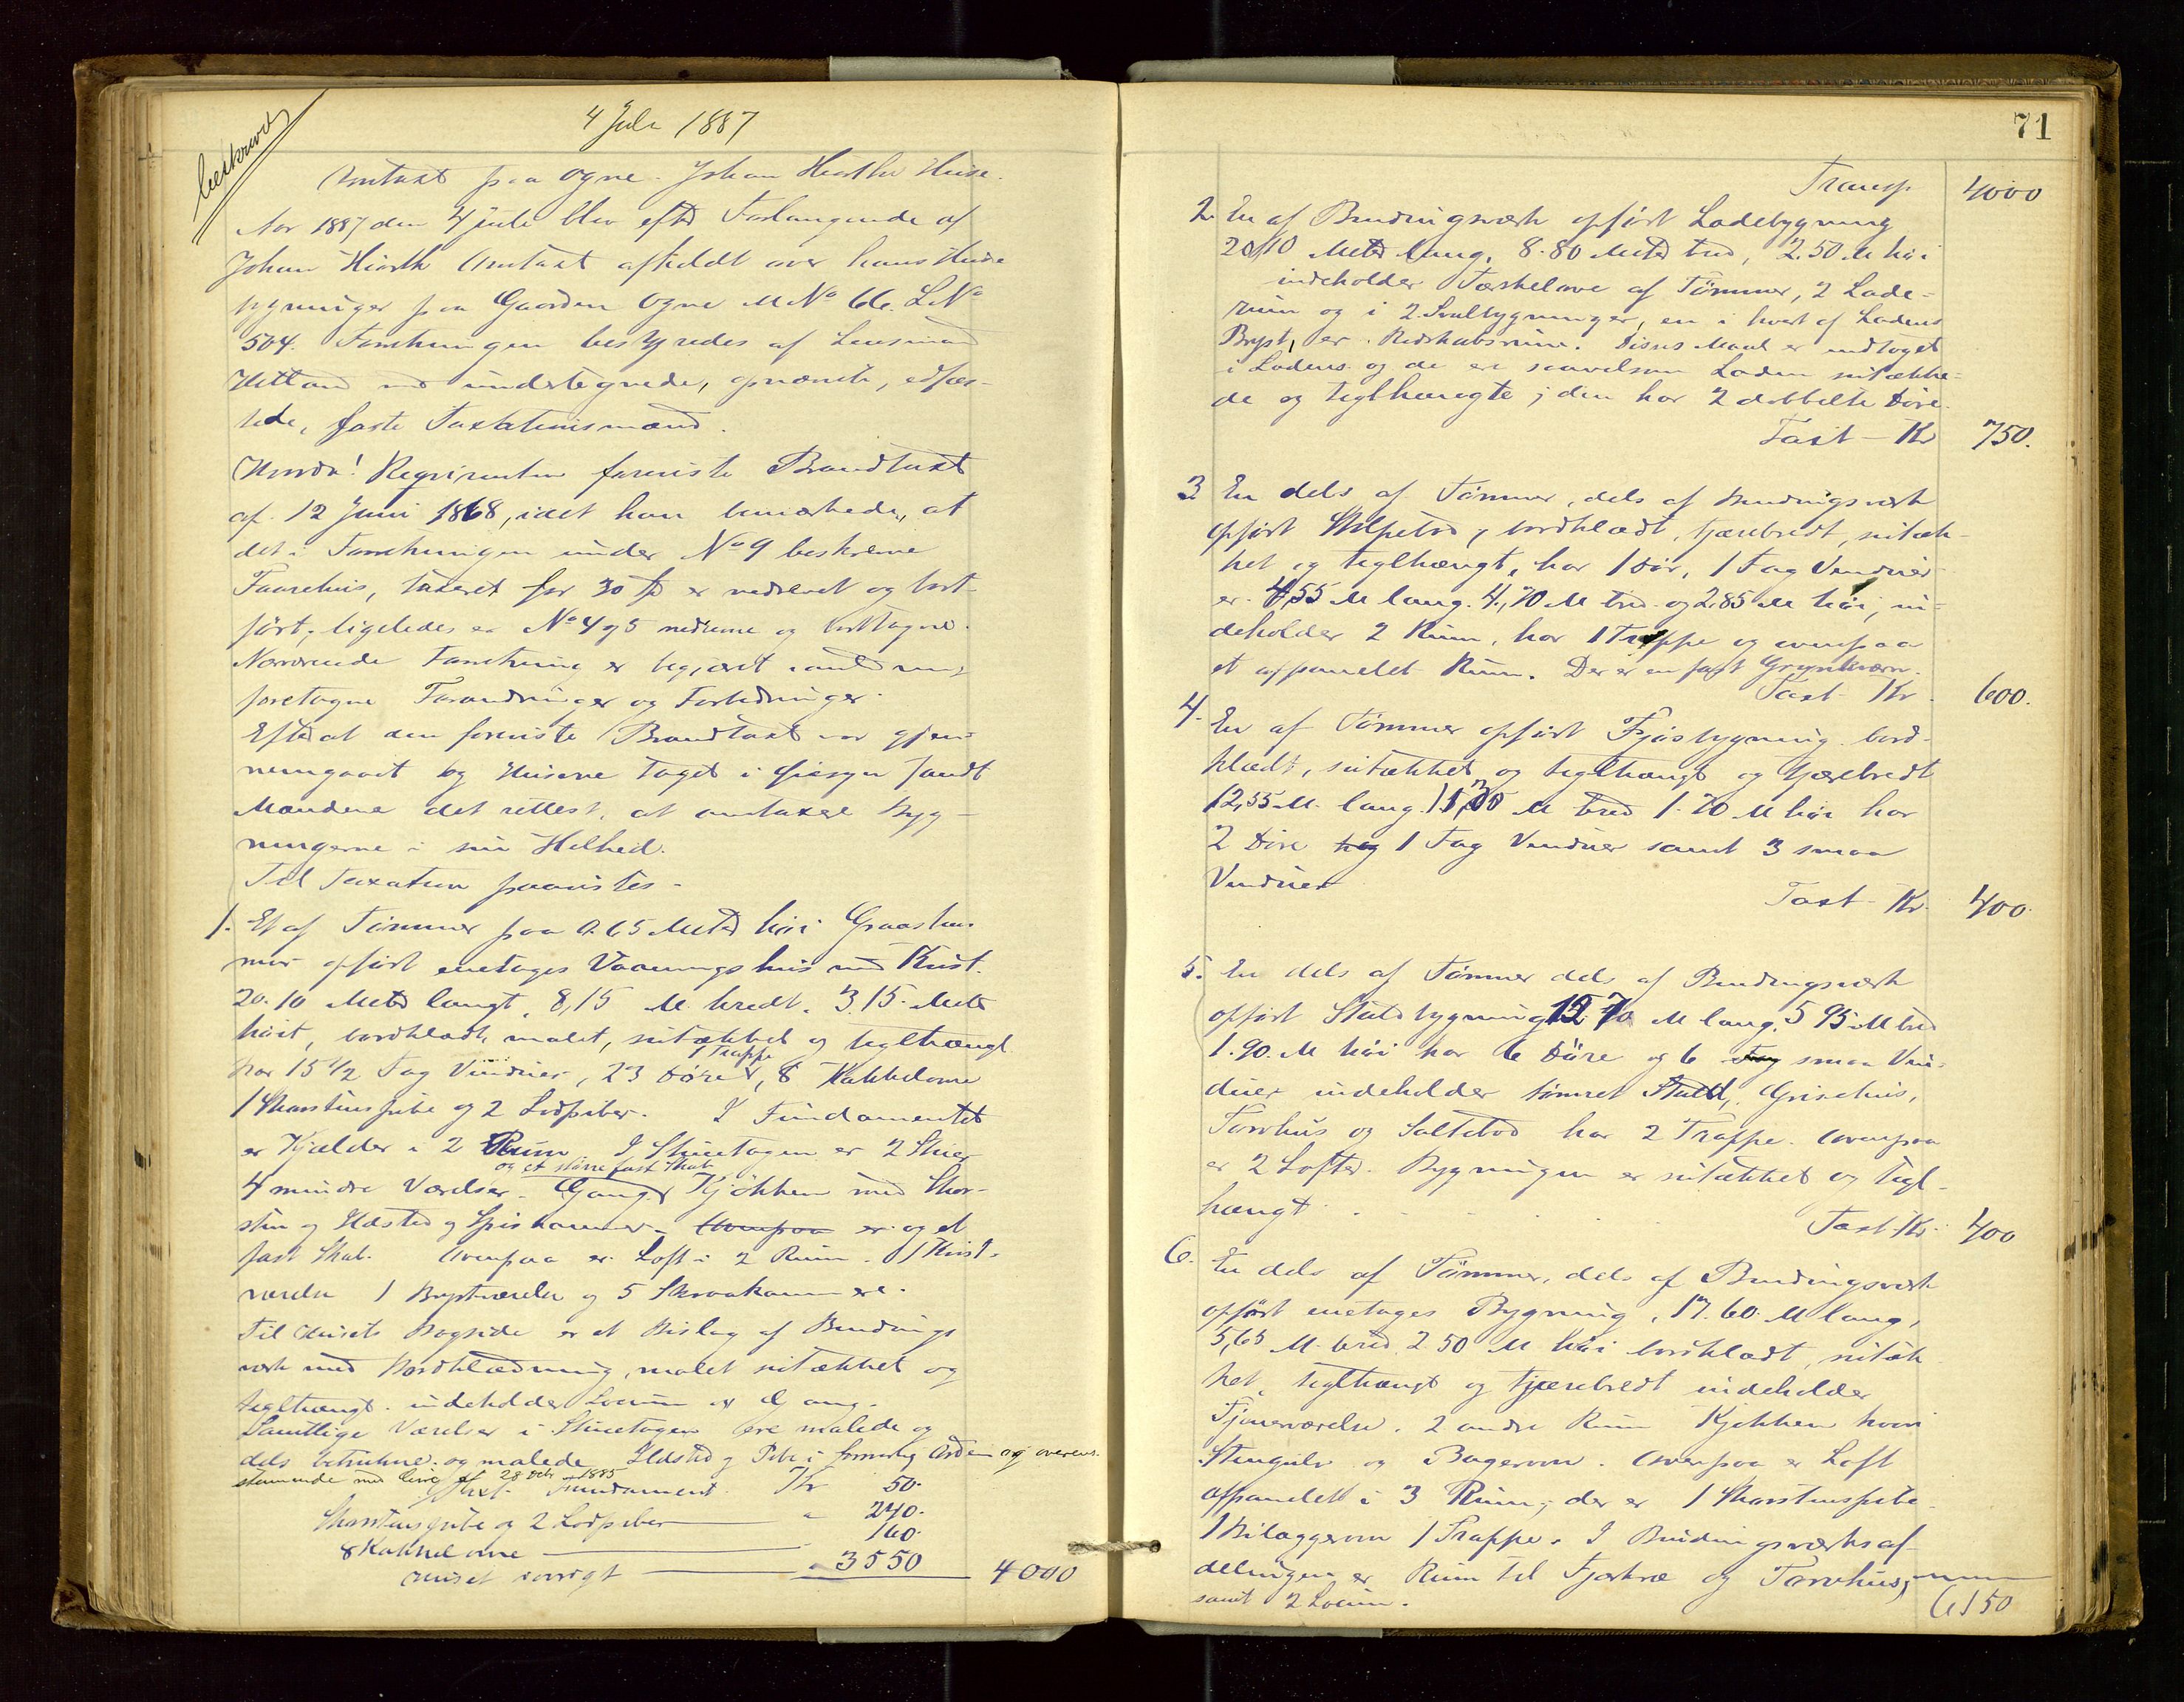 beskrevet
4 Juli 1887
Omtaxt paa Ogne. Johan Hiorths Huse.
Aar 1887 den 4 Juli blev efter Forlangende af
Johan Hiorth Omtaxt afholdt over hans Huse
bygninger paa Gaarden Ogne M No 66. L No
504. Forretningen bestyredes af Lensmand
Hetland med undertegnede, opnævnte, edfæs-
tede, faste Taxationsmænd.
Hvorda! Reqvirenten foreviste Brandtaxt
af 12 Juni 1868, idet han bemærkede, at
det i Forretningen under No 9 beskrevne
Faarehus, taxeret for 30 Spd er nedrevet og bort-
ført, ligeledes er No 4 og 5 nedrevne og borttagne.
Nærværende Forretning er begjært
foretagne Forandringer og Forbedringer.
Efterat den foreviste Brandtaxt var gjen-
nemgaaet og Husene taget i Øiesyn fandt
Mændene det rettest, at omtaxere Byg-
ningerne i sin Helhed.
Til Taxation paavistes -
1. Et af Tømmer paa 0.65 Meter høi Graastens
mur opført enetages Vaaningshus med Kvist.
20.10 Meter langt, 8,15 M. bredt. 3.15. Meter
høit, bordklædt, malet, nitækket og teglhængt
1 Trappe
har 15 1/2 Fag Vinduer, 23 Døre, 8 Kakkelovne
1 Skorstenspibe og 2 Lodpiber. I Fundamentet
er Kjælder i 2 Rum I Stueetagen er 2 Stuer
og et større fast Skab
4 mindre Værelser. Gang, Kjøkken med Skor-
sten og Ildsted og Spiskammer. Ovenpaa er og et
fast Skab. Ovenpaa er Loft i 2 Rum. 1 Kvist-
værelse 1 Brystværelse og 5 Skraakammere.
Til Husets Bagside er et Bislag af Bindings
værk med Bordklædning, malet nitækket og
teglhængt. indeholder Locum og Gang.
Samtlige Værelser i Stueetagen ere malede og
dels betrukne og malede Ildsted og Pibe i forsvarlig Orden og overens-
stemmende med Lov af 28 Octb 1885
Fundament Kr 50.
Skorstenspibe og 2 Lodpiber " 240.
8 Kakkelovne 160.
Huset iøvrigt 3550 4000
71
Transp 4000
2. En af Bindingsværk opført Ladebygning
20,10 Meter lang, 8.80 Meter bred, 2.50 M høi
indeholder Tærskelove af Tømmer, 2 Lade-
rum og i 2 Svalbygninger, en i hvert af Ladens
Bryst, er Redskabsrum. Disses Maal er indtaget
i Ladens og de ere saavelsom Laden nitække-
de og teglhængte; den har 2 dobbelte Døre.
Taxt - Kr 750.
3 En dels af Tømmer, dels af Bindingsværk
opført Stolpebod, bordklædt, tjærebredt, nitæk-
ket og teglhængt, har 1 Dør, 1 Fag Vinduer
er 4,55 M lang. 4,70 M bred og 2,85 M høi, in-
deholder 2 Rum, har 1 Trappe og ovenpaa
et afpanelet Rum. Der er en fast Grynkværn.
Taxt Kr. 600.
4. En af Tømmer opført Fjøsbygning. bord-
klædt, nitækket og teglhængt og tjærebredt
12,55 M. lang. M bred 1.70 M høi har
2 Døre 1 Fag Vinduer samt 3 smaa
Vinduer
Taxt - Kr. 400.
5. En dels af Tømmer dels af Bindingsværk
opført Staldbygning 15 70 M lang. 5 95 M bred
1.90. M høi har 6 Døre og 6 Fag smaa Vin-
duer indeholder tømret Stald, Grisehus,
Torvhus og Saltebod har 2 Trappe. Ovenpaa
er 2 Lofter. Bygningen er nitækket og tegl-
hængt
Taxt Kr. 400
6. En dels af Tømmer, dels af Bindingsværk
opført enetages Bygning, 17.60. M lang,
5,65 M. bred 2 50 M høi bordklædt, nitæk
ket, teglhængt og tjærebredt indeholder
Tjenerværelse. 2 andre Rum Kjøkken hvori
Stengulv og Bagerovn. Ovenpaa er Loft
afpanelet i 3 Rum; der er 1 Skorstenspibe
1 Bilæggerovn 1 Trappe. I Bindingsværksaf-
delingen er Rum til Fjærkræ og Torvhus;
samt 2 Locum.
6150